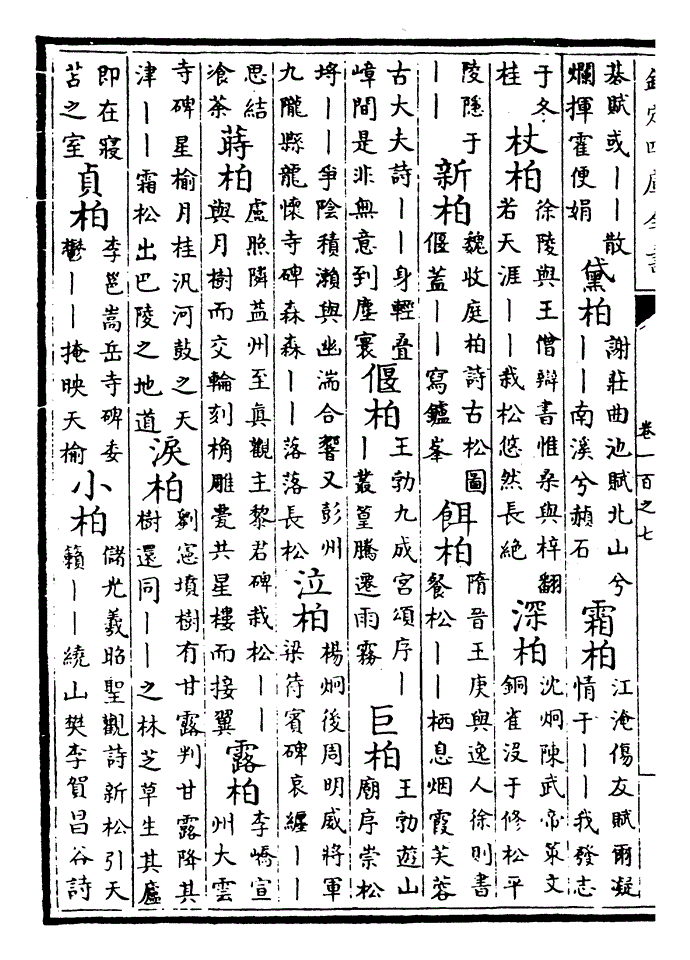 欽定四庫全書
卷一百之七
綦賦或丨丨散爛揮霍便娟 黛柏 謝莊曲池賦北山兮丨丨南溪兮赬石 霜柏 江淹傷友賦爾凝情于丨丨我發志
于冬桂 杖柏 徐陵與王僧辯書惟桑與梓翻若天涯丨丨栽松悠然長絶 深柏 沈炯陳武帝策文銅雀沒于修松平
陵隱于丨丨 新柏 魏收庭柏詩古松圖偃蓋丨丨寫鑪峯 餌柏 隋晉王庚與逸人徐則書餐松丨丨栖息烟霞芙蓉
古大夫詩丨丨身輕疊嶂間是非無意到塵寰 偃柏 王勃九成宮頌序丨丨叢篁騰遷雨霧 巨柏 王勃遊山廟序崇松
埓丨丨爭陰積瀨與幽湍合響又彭州九隴縣龍懷寺碑森森丨丨落落長松 泣柏 楊炯後周明威將軍梁待賓碑哀纏丨丨
思結飡茶 蒔柏 盧照隣益州至真觀主黎君碑栽松丨丨與月樹而交輪刻桷雕甍共星樓而接翼 露柏 李嶠宣州大雲
寺碑星榆月桂汎河鼓之天津丨丨霜松出巴陵之地道 淚柏 劉憲墳樹有甘露判甘露降其樹還同丨丨之林芝草生其廬
即在寢苫之室 貞柏 李邕嵩岳寺碑委鬱丨丨掩映天榆 小柏 儲光羲昭聖觀詩新松引天籟丨丨繞山樊李賀昌谷詩